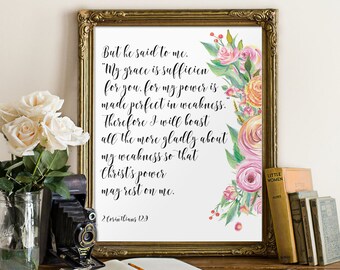 But he said to me,
"My grace is sufficien
for you, for my power is
made perfect in weakness.
Therefore I will boast
all the more gladly about
my weakness so that
Christ's power
may rest on me.
2 Corinthians 12:9
LITTLE
WOMEN